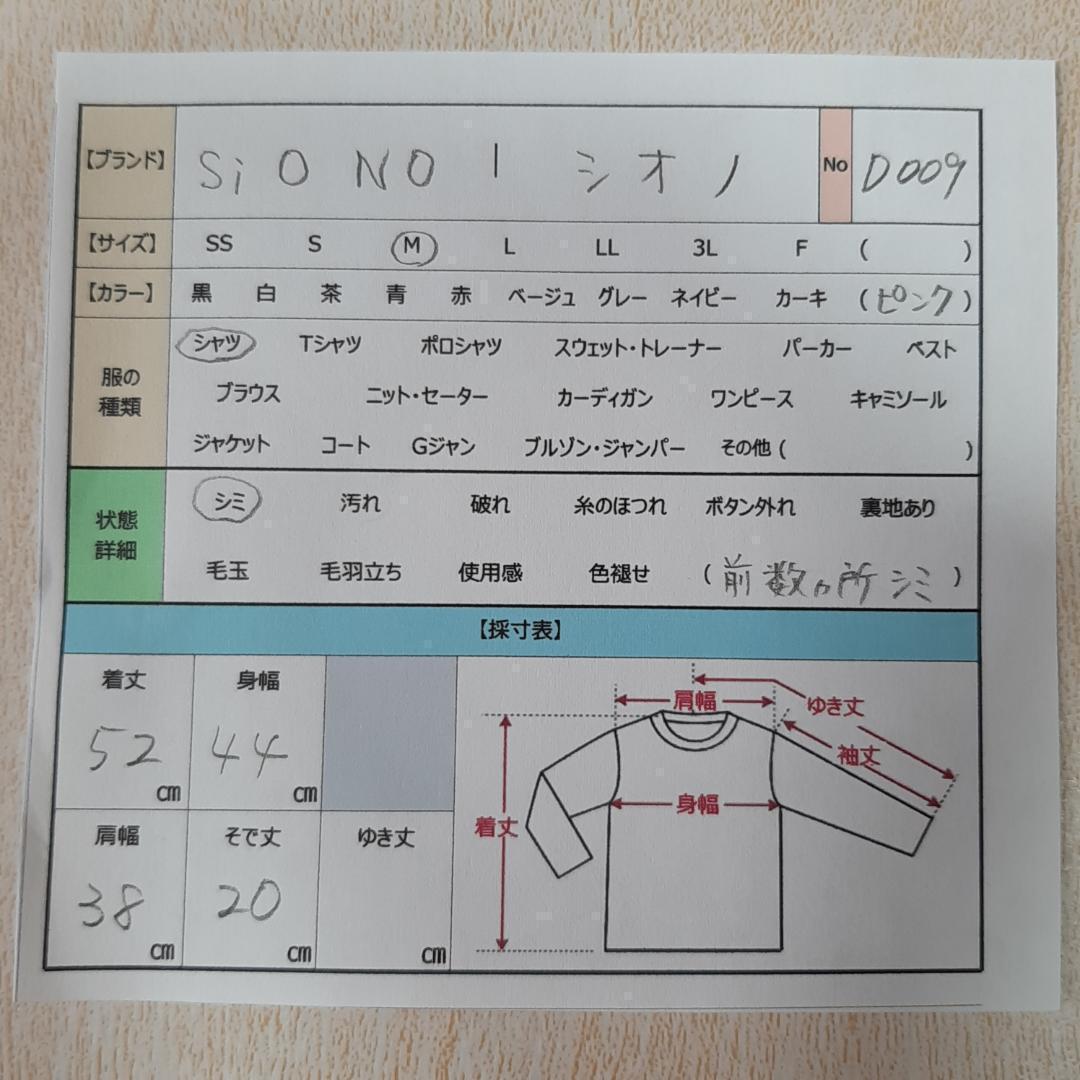 【ブランド】 Si O NO | シオノ No D009
【サイズ】 SS S M L LL 3L F ( )
【カラー】 黒 白 茶 青 赤 ベージュ グレー ネイビー カーキ (ピンク)
服の種類
シャツ Tシャツ ポロシャツ スウェット・トレーナー パーカー ベスト
ブラウス ニット・セーター カーディガン ワンピース キャミソール
ジャケット コート Gジャン ブルゾン・ジャンパー その他 ( )
状態詳細
シミ 汚れ 破れ 糸のほつれ ボタン外れ 裏地あり
毛玉 毛羽立ち 使用感 色褪せ (前数ヵ所シミ)
【採寸表】
着丈 身幅
52 cm 44 cm
肩幅 そで丈 ゆき丈
38 cm 20 cm cm
肩幅 ゆき丈
袖丈
身幅
着丈